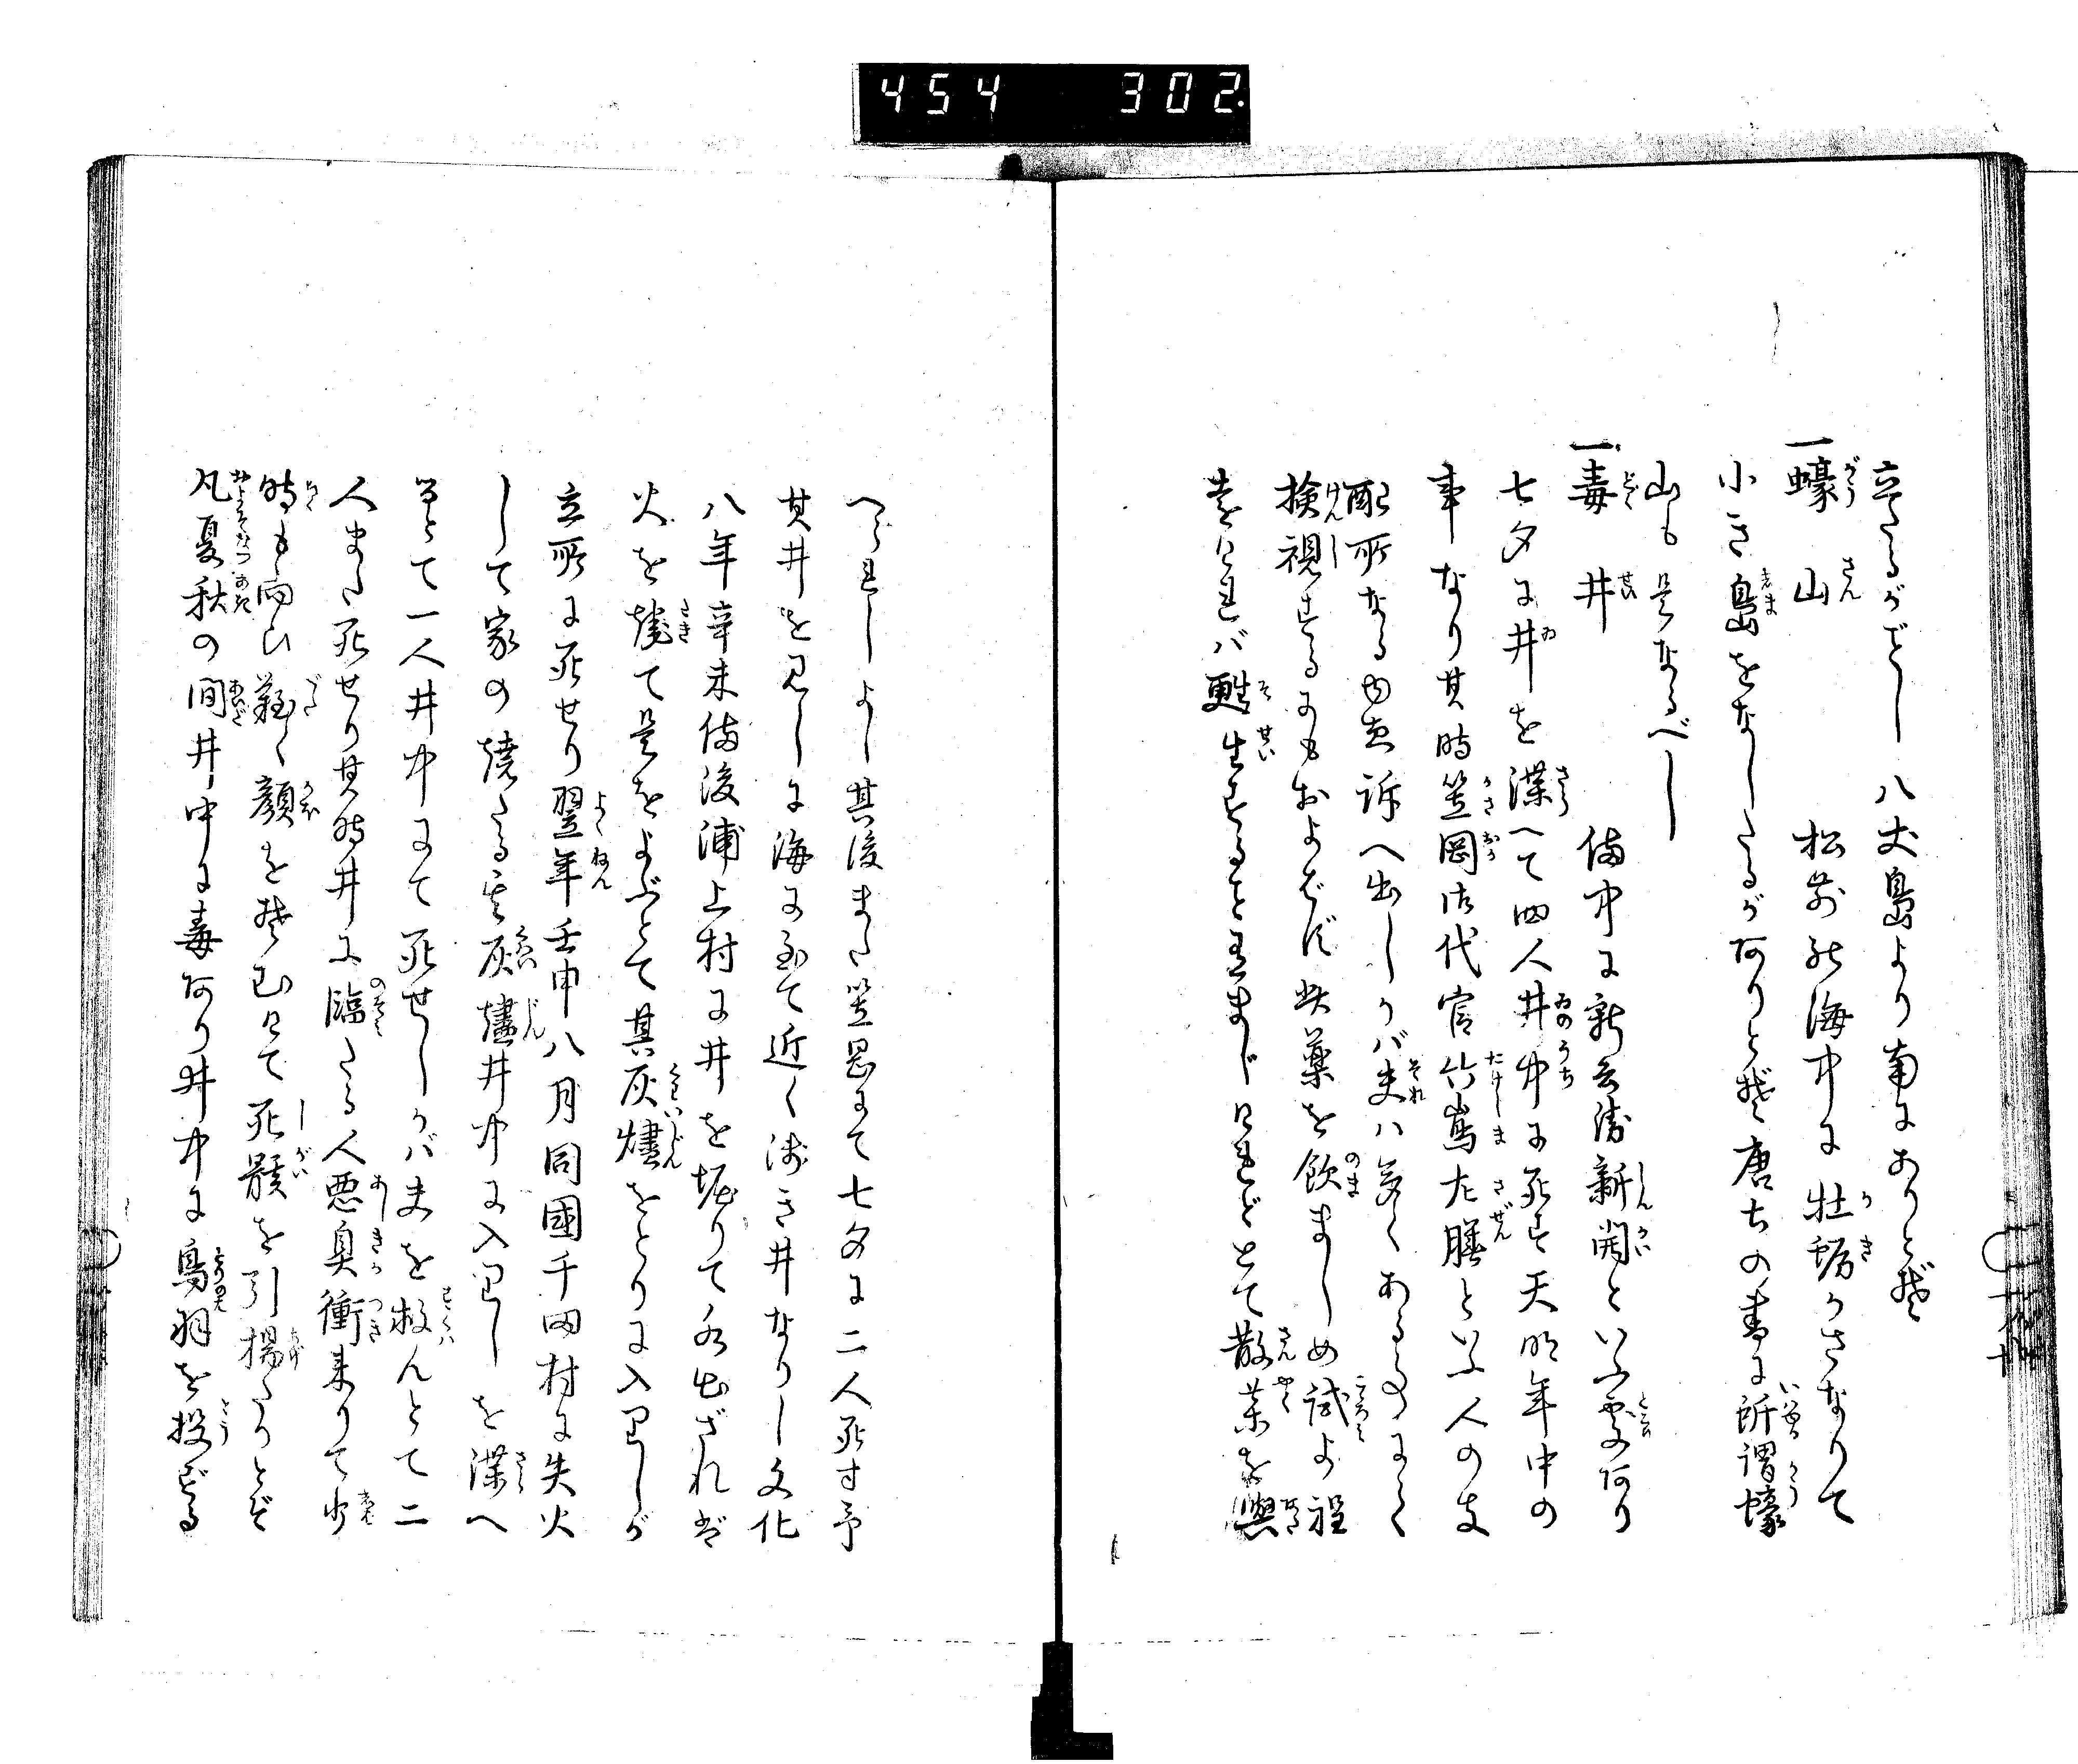 454 302.
立たるがごとし八丈島より南にありとぞ
一蠔山 松前の海中に牡蛎かさなりて
小き島をなしたるが有りとぞ唐土の書に所謂蠔
山も是なるべし
一毒井 備中に新 新開といふ処あり
七夕に井を渫へて四人井中に死す天明年中の
事なり其時笠岡御代官竹嶌左膳といふ人の支
配所なる 訴へ出しかバ夫ハ多くある事にて
検視するにもおよばず此薬を飲ましめ試よ程
遠けれバ甦生すると有まじけれどとて散薬を與
へられしよし其後また笠岡にて七夕に二人死す予
其井を見しに海に至て近く浅き井なりし文化
八年辛未備後浦上村に井を堀りて水出ざれば
火を焼て是をよぶとて其灰燼をとりに入りしが
立所に死せり翌年壬申八月同國千田村に失火
して家の焼たる 灰燼井中に入りしを渫へ
るとて一人井中にて死せしかバ夫を救んとて二
人また死せり其時井に臨たる人悪臭衝来りて少
時も向ひ難く顔を背むけて死骸を引揚たりとぞ
凡夏秋の間井中に毒あり井中に鳥羽を投ずる